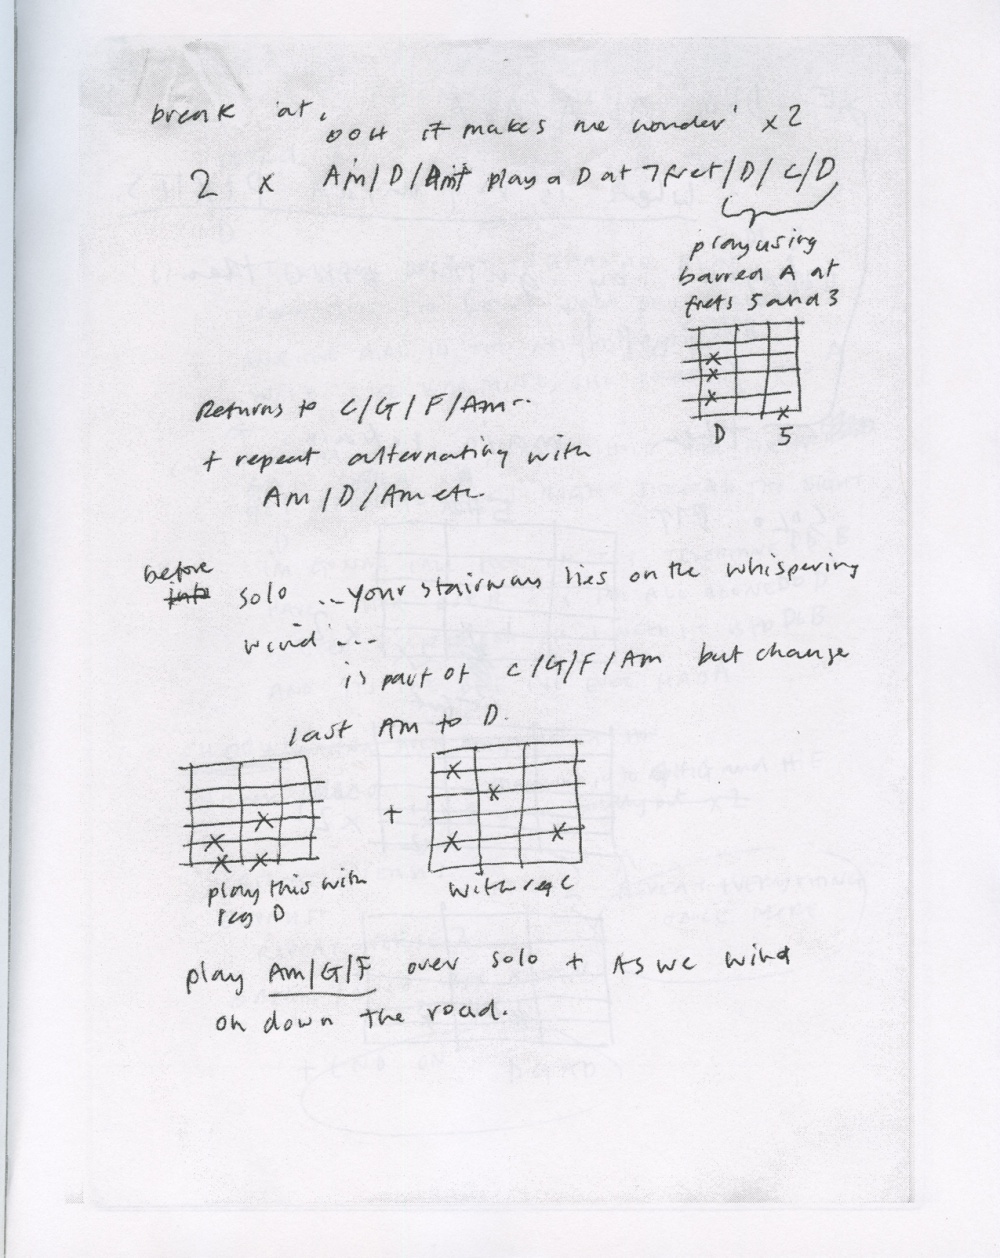 break at,
OOH it makes me wonder' x 2
2 x Am/D/ play a D at 7 fret/D/C/D
play using
barred A at
frets 5 and 3
x
x
x
x
D 5
Returns to C/G/F/Am..
+ repeat alternating with
Am/D/Am etc.
before
into solo ... your stairway lies on the whispering
wind ...
is part of C/G/F/Am but change
last Am to D.
x
x
x x
+
x
x
x x
play this with
reg D
with reg C
play Am/G/F over solo + As we wind
on down the road.